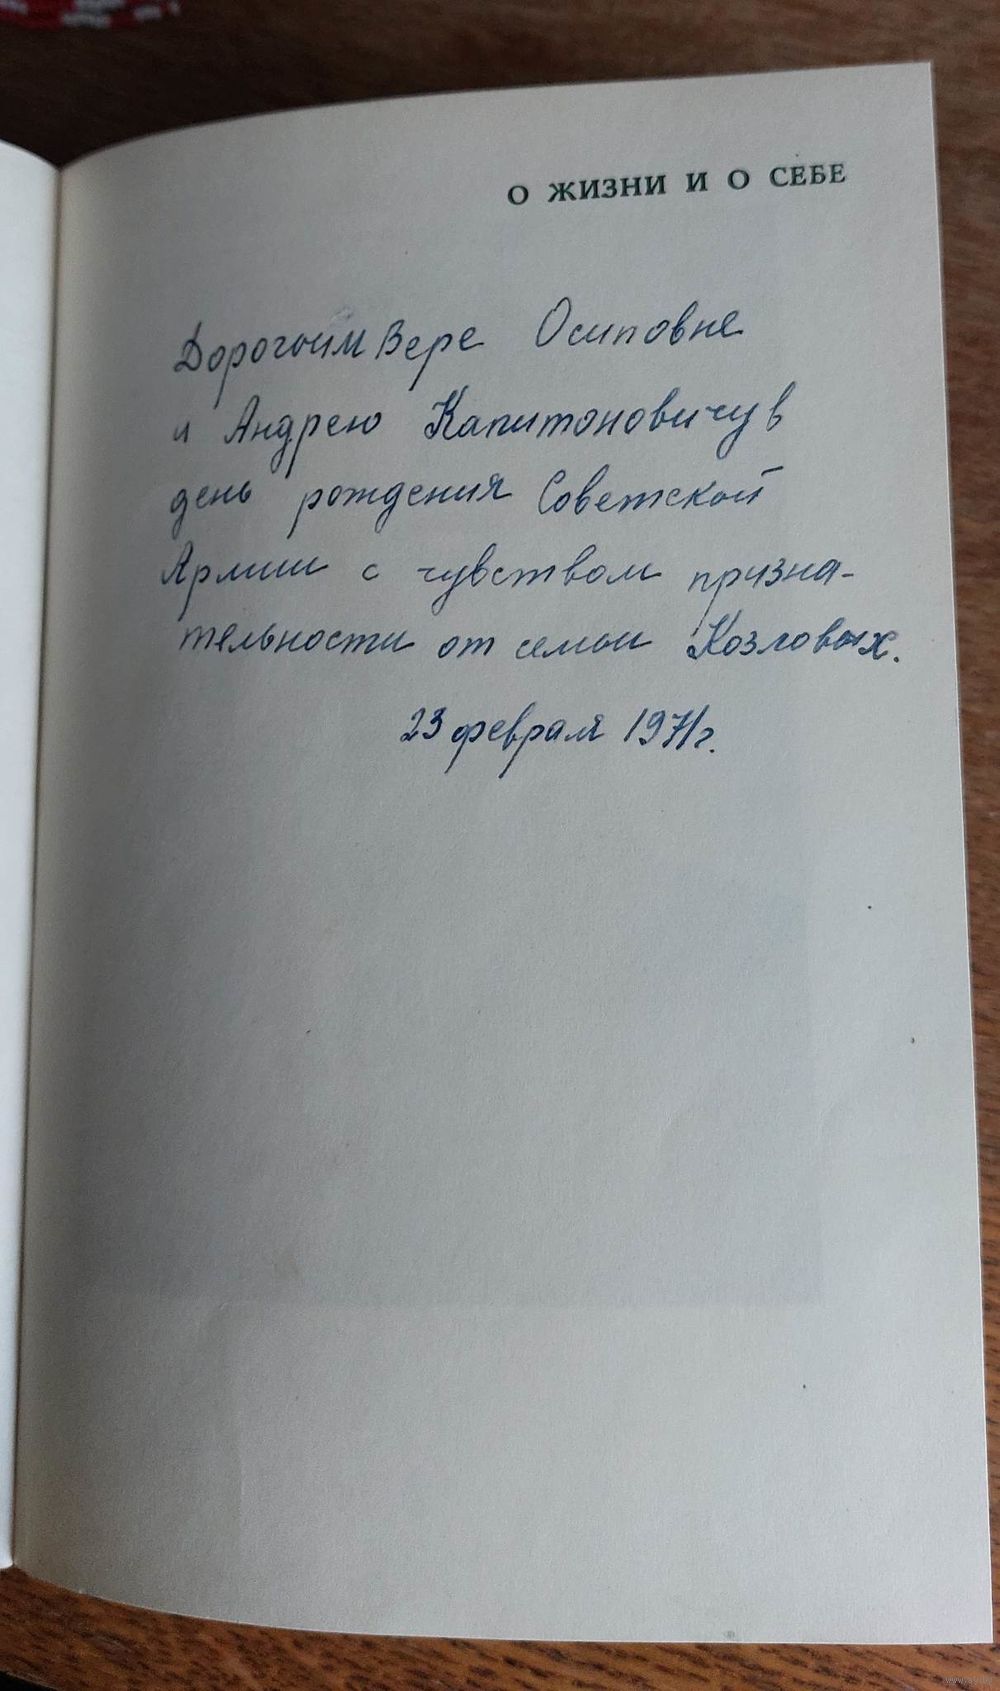 О ЖИЗНИ И О СЕБЕ
Дорогим Вере Осиповне
и Андрею Капитоновичу в
день рождения Советской
Армии с чувством призна-
тельности от семьи Козловых.
23 февраля 1971г.